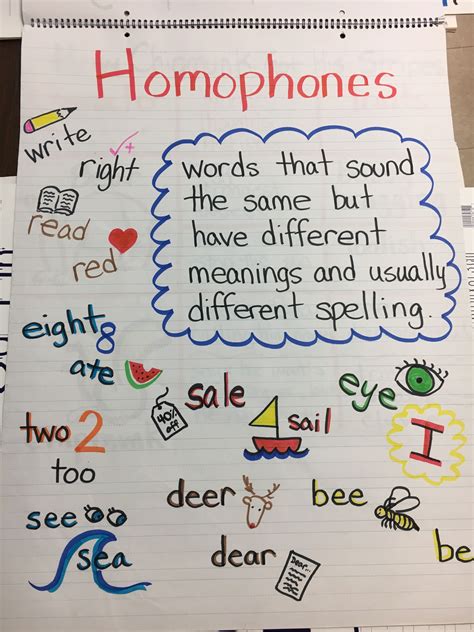 Homophones
write
right
words that sound
the same but
have different
meanings and usually
different spelling.
read
red
eight 8
ate
sale
40%
off
sail
eye
I
two 2
too
see
sea
deer
dear
bee
be